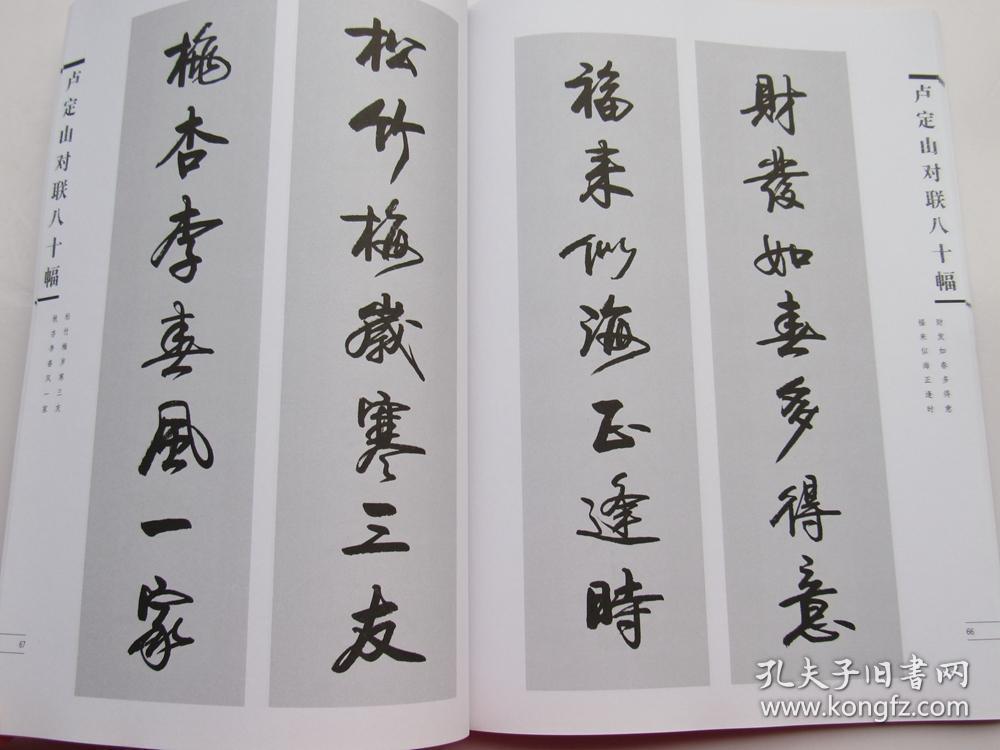 卢定山对联八十幅
财发如春多得意
福来似海正逢时
66
財發如春多得意
福来似海正逢時
松竹梅歲寒三友
桃杏李春風一家
卢定山对联八十幅
松竹梅岁寒三友
桃杏李春风一家
67
孔夫子旧書网
www.kongfz.com